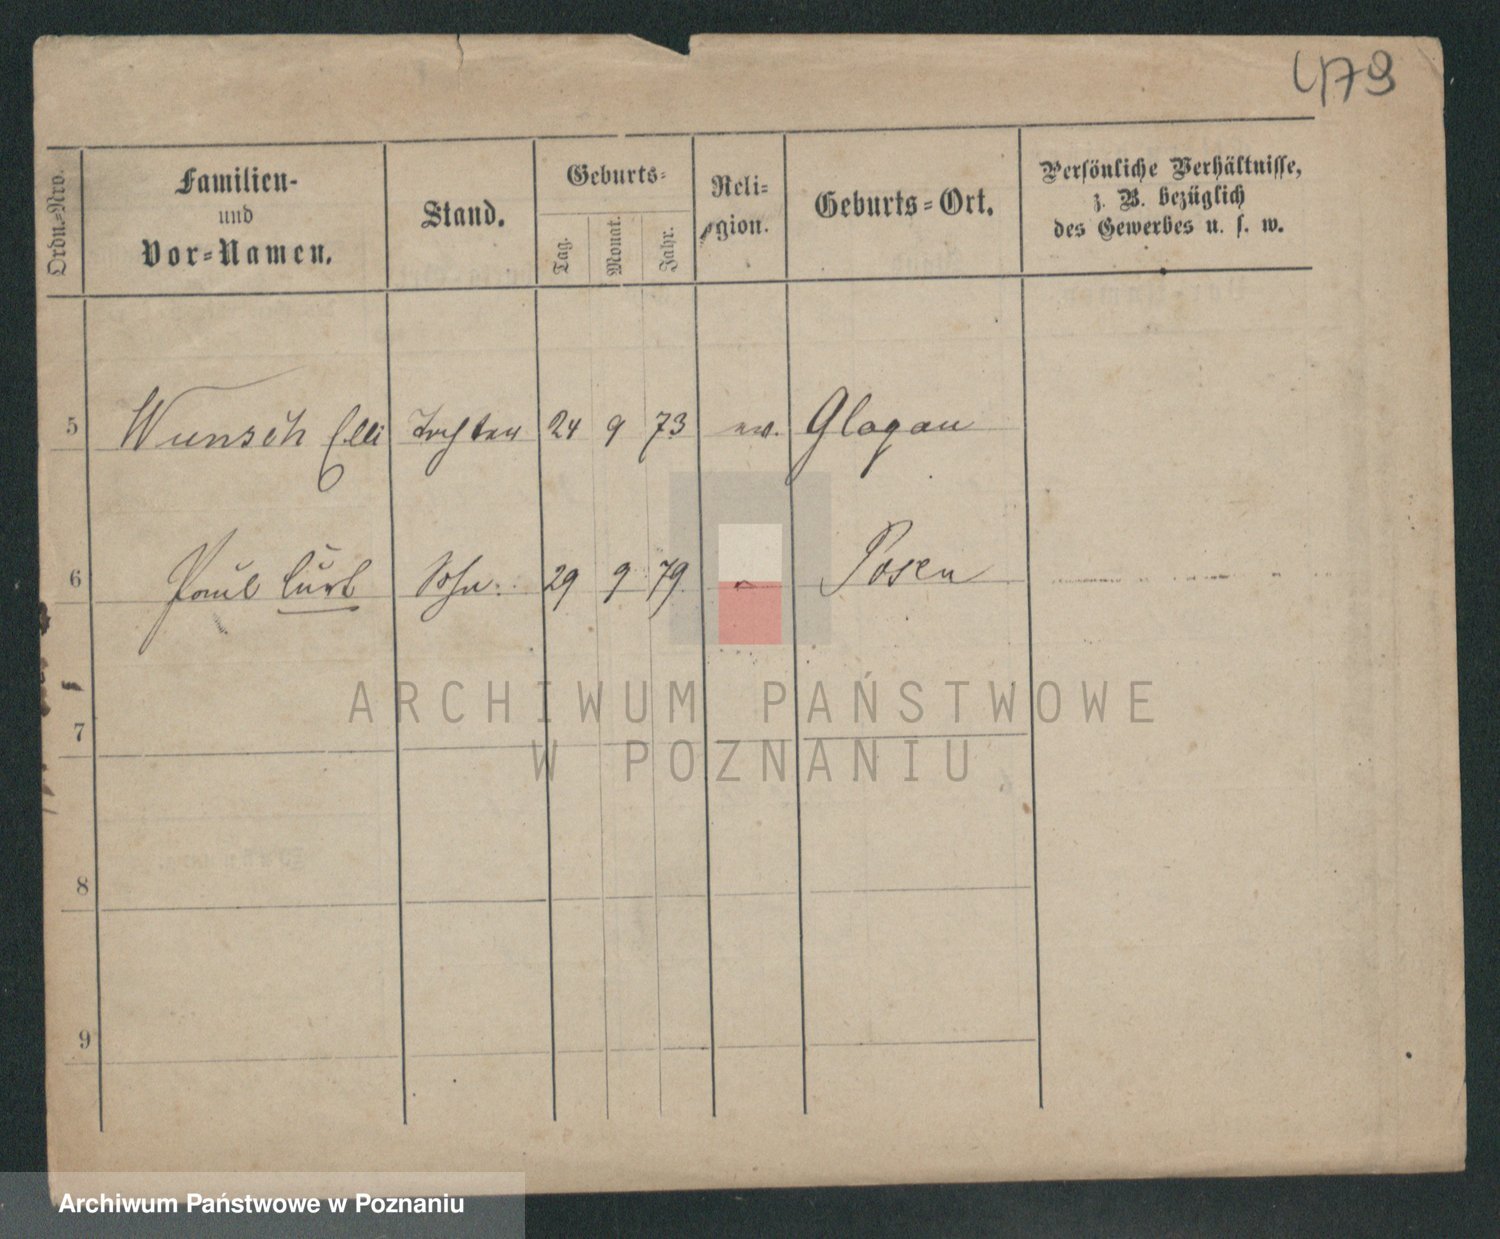 479
Ordn.=Nro.
Familien-
und
Vor=Namen.
Stand.
Geburts=
Tag.
Monat.
Jahr.
Reli=
gion.
Geburts=Ort.
Persönliche Verhältnisse,
z. B. bezüglich
des Gewerbes u. s. w.
5 Wunsch Elli Tochter 24 9 73 ev. Glogau
6 Paul Curt Sohn. 29 9 79 " Posen
7
8
9
ARCHIWUM PAŃSTWOWE
W POZNANIU
Archiwum Państwowe w Poznaniu